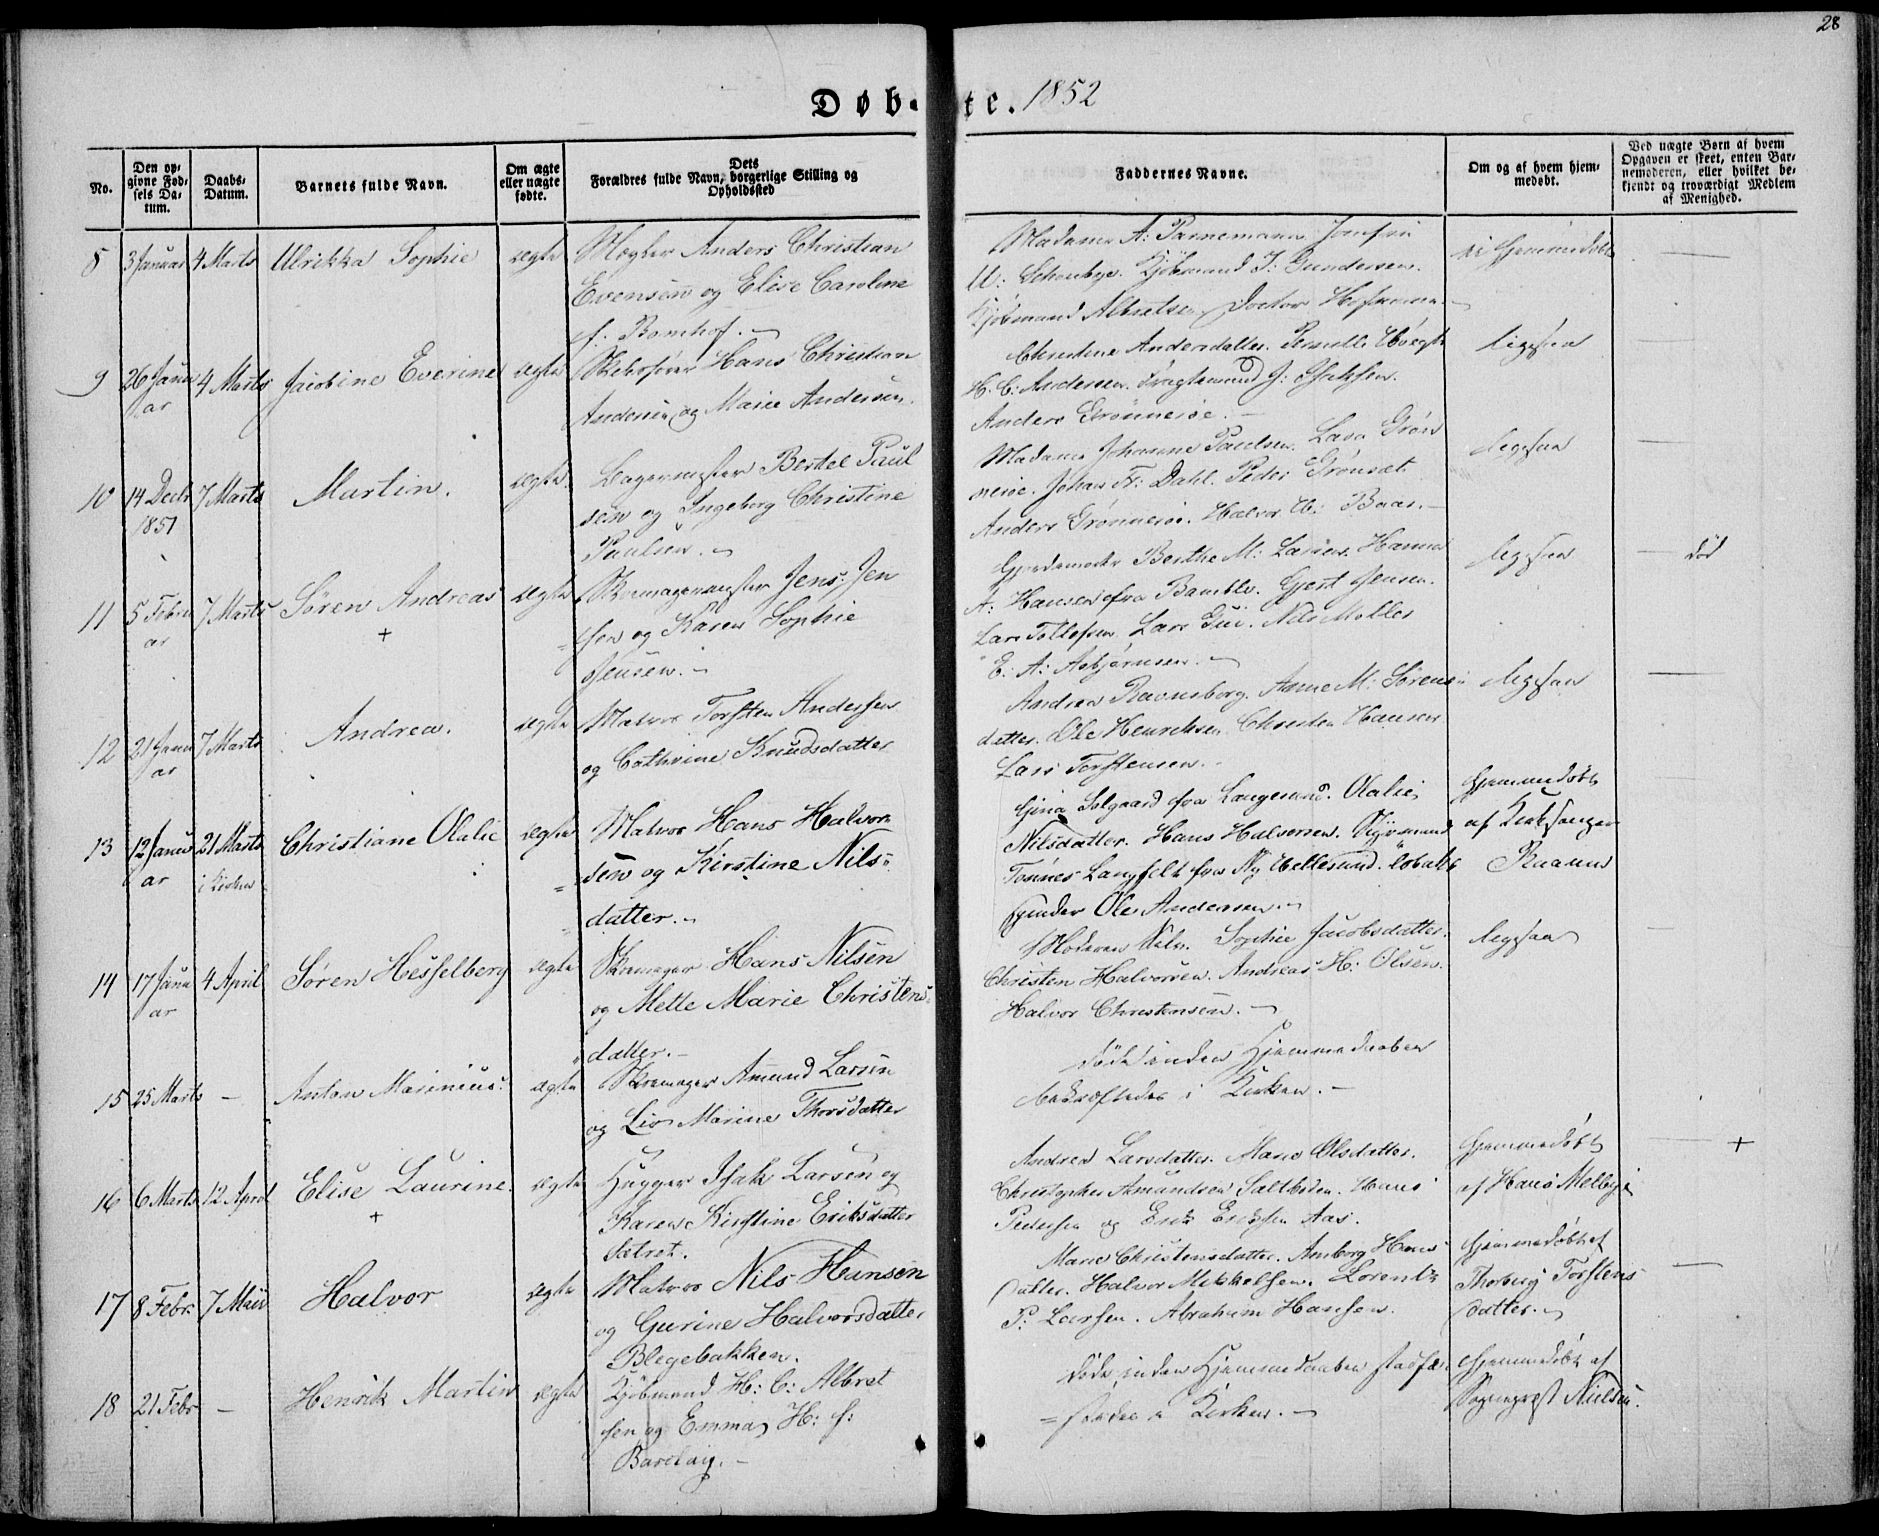 28
Døbte. 1852
No.
Den op-
givne Fød-
sels Da-
tum.
Daabs-
Datum.
Barnets fulde Navn.
Om ægte
eller uægte
fødte.
Dets
Forældres fulde Navn, borgerlige Stilling og
Opholdssted
Faddernes Navne.
Om og af hvem hjem-
medøbt.
Ved uægte Børn af hvem
Opgaven er skeet, enten Bar-
nemoderen, eller hvilket be-
kjendt og troværdigt Medlem
af Menighed.
8 3 Januar 4 Marts Ulrikka Sophie ægte Mægler Anders Christian
Evensen og Elise Caroline
f. Bomhof.
Madame A: Parnemann Jomfru
U: Kjøbmand J: Gundersen.
Kjøbmand Albretsen, Doctor
9 26 Janu
ar 4 Marts Jacobine Everine ægte Hans Christian
Andersen og Marie Andersen.
Christine Andersdatter.
H. C: Andersen. J: Isaksen.
Anders Grønneröe.
ligesaa
10 14 Decbr
1851 7 Marts Martin. ægte Bertel Paul
sen og Ingeborg Christine
Paulsen.
Madame Johanne Paulsen. Lava Grön
neröe. Johan Fr: Dahl. Peder Grönsæt
Anders Grønneröe. Halvor Baar.
ligesaa
11 5 Febru
ar 7 Marts Søren Andreas
+
ægte Skomagermester Jens Jen
sen og Karen Sophie
Jensen.
Berthe M: Larsen. Hanna
A: Hansen fra Bamble. Gjert Jensen.
Lars Tollefsen. Lars Nils Møller
E: A: Asbjørnsen.
ligesaa
død
12 21 Janu
ar 7 Marts Andrea. ægte Matros Torsten Andersen
og Cathrine Knudsdatter
Andrea Ravnsborg. Anne M: Sørens
datter. Ole Henriksen, Christen Hansen
Lars Torstensen.
ligesaa
13 12 Janu
ar 21 Marts
i Kirken Christiane Olalie ægte Matros Hans Halvor
sen og Kirstine Nils
datter.
Gina Solgaard fra Langesund. Olalie
Nilsdatter. Hans Halvorsen. Styrmand
Tønnes Langfelt fra Ny Hellesund.
Ole Andersen.
hjemmedøbt
af Kirkesanger
14 17 Janu
ar 4 April Søren Hesselberg ægte Skomager Hans Nilsen
og Mette Marie Christens
datter.
Moderen selv. Sophie Jacobsdatter.
Christen Halvorsen. Andreas H: Olsen.
Halvor Christensen.
ligesaa
15 25 Marts – Anton Marinius. ægte Skomager Amund Larsen
og Liv Marine Thorsdatter
døde inden Hjemmedaaben
bekræftedes i Kirken.
16 6 Marts 12 April Elise Laurine.
+
ægte Hugger Isak Larsen og
Karen Kirstine Eriksdatter
Andrea Larsdatter. Maren Olsdatter.
Christopher Amundsen Saltboden. Hans
Pedersen og Erik Eriksen Aas.
hjemmedøbt
af Hans Melbye
+
17 8 Febr. 7 Mai Halvor ægte Matros Nils Hansen
og Gurine Halvorsdatter
Blegebakken.
Maren Christensdatter. Amborg Hans
datter. Halvor Mikkelsen. Lorentz
P: Larsen. Abraham Hansen.
hjemmedøbt af
Thoborg Torstens
datter.
18 21 Febr – Henrik Martin ægte Kjøbmand H: C: Albret
sen og Emma H: f:
Barclay.
døde inden Hjemmedaaben stadfæ
stedes i Kirken.
hjemmedøbt af
Sogneprest Nielsen.